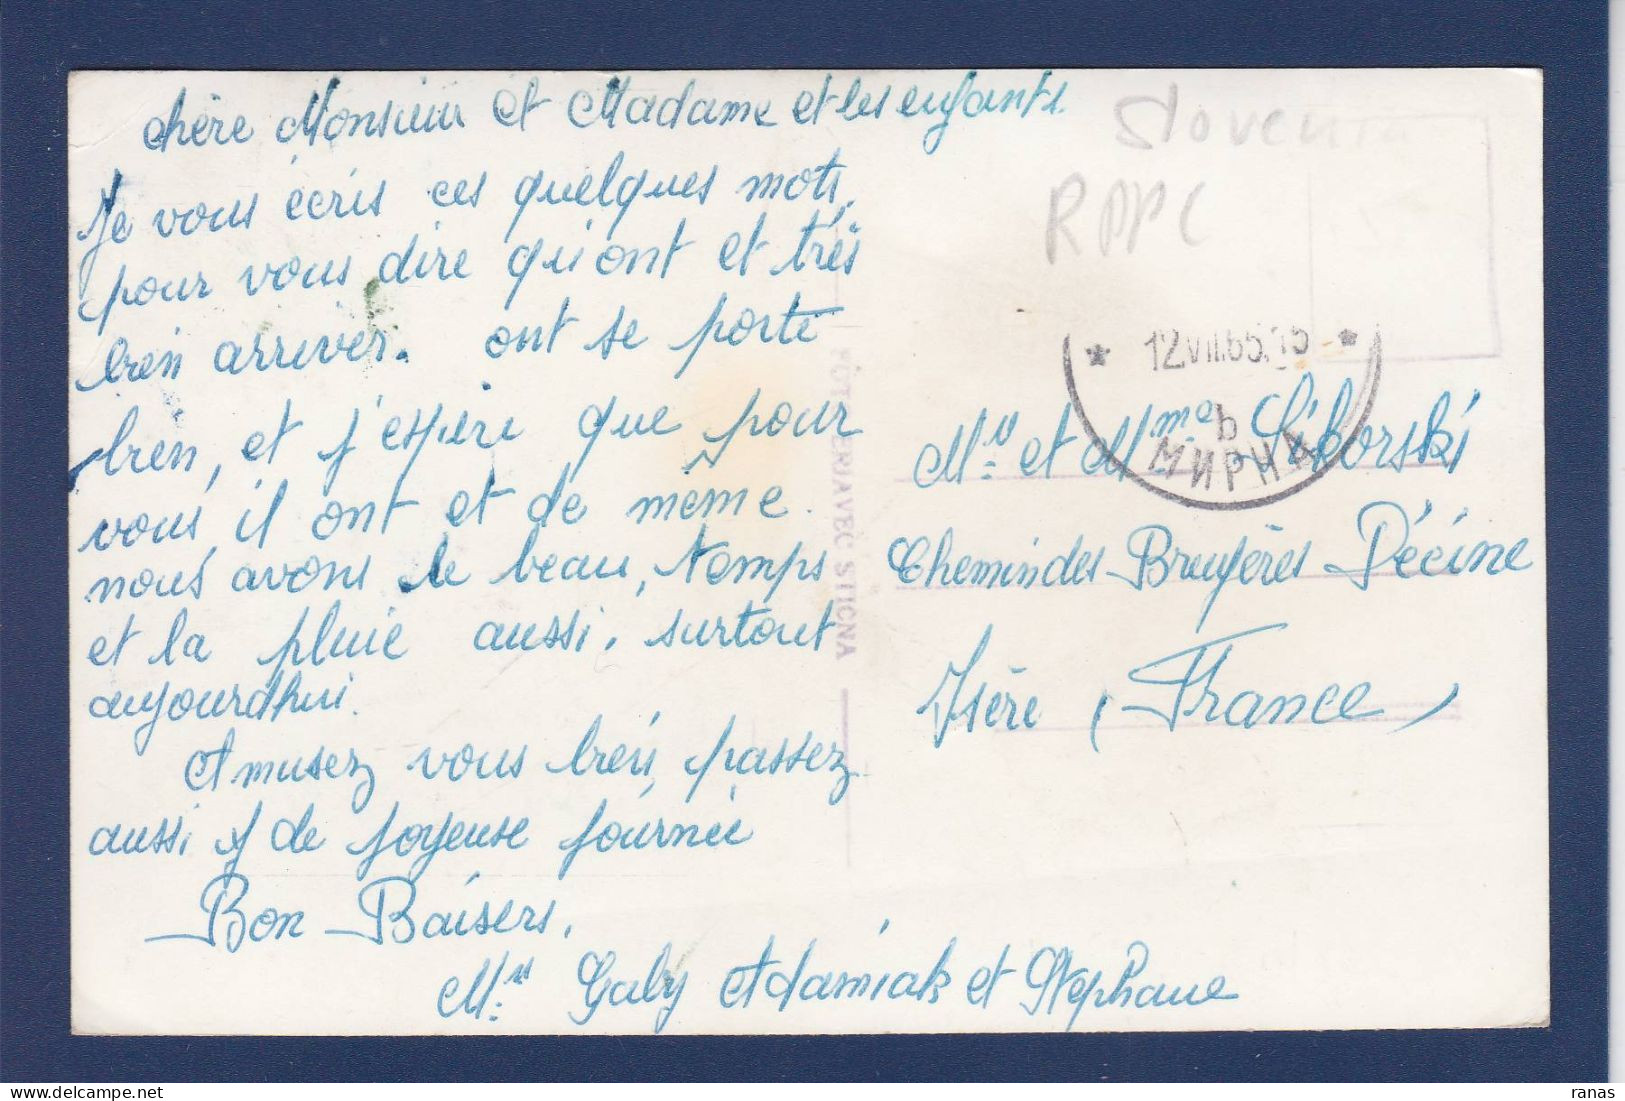 chère Monsieur et Madame et les enfants.
Je vous écris ces quelques mots,
pour vous dire qu'iont et très
bien arriver. ont se porte
bien, et j'espère que pour
vous il ont et de même.
nous avons le beau, temps
et la pluie aussi, surtout
aujourdhui.
Amusez vous bien, passez
aussi de joyeuse journée
Bon Baisers.
Mr Gaby Adamiak et Stephane
Slovenia
RPPC
12.VII.65.15
b
МИРНА
Mr et Mme Sikorski
Chemin des Bruyères Décine
Isère (France)
FOTO BRJAVEC STIČNA
ranas